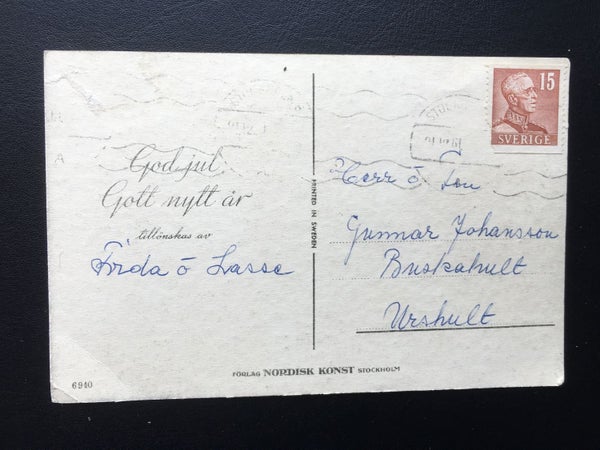 God jul
Gott nytt år
tillönskas av
Frida ö Lasse
PRINTED IN SWEDEN
15
SVERIGE
Herr ö Fru
Gunnar Johansson
Buskahult
Urshult
FÖRLAG NORDISK KONST STOCKHOLM
6940